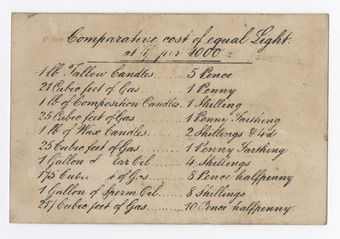 Comparative cost of equal Light.
at 4/ per 1000
1 lb Tallow Candles...... 5 Pence
21 Cubic feet of Gas 1 Penny
1 lb of Composition Candles 1 Shilling
25 Cubic feet of Gas 1 Penny Farthing
1 lb of Wax Candles. 2 Shillings & 4d
25 Cubic feet of Gas 1 Penny Farthing
1 Gallon of Tar Oil 4 Shillings
175 Cubic of Gas 8 Pence halfpenny
1 Gallon of Sperm Oil..... 8 Shillings
217 Cubic feet of Gas....... 10 Pence halfpenny